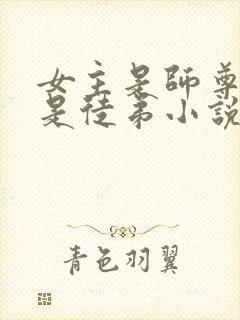 女主是師尊
是徒弟小說
青色羽翼